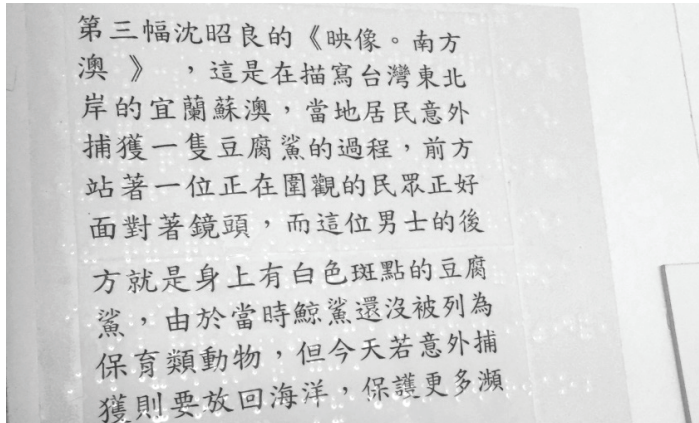 第三幅沈昭良的《映像。南方
澳 》 ，這是在描寫台灣東北
岸的宜蘭蘇澳，當地居民意外
捕獲一隻豆腐鯊的過程，前方
站著一位正在圍觀的民眾正好
面對著鏡頭，而這位男士的後
方就是身上有白色斑點的豆腐
鯊，由於當時鯨鯊還沒被列為
保育類動物，但今天若意外捕
獲則要放回海洋，保護更多瀕